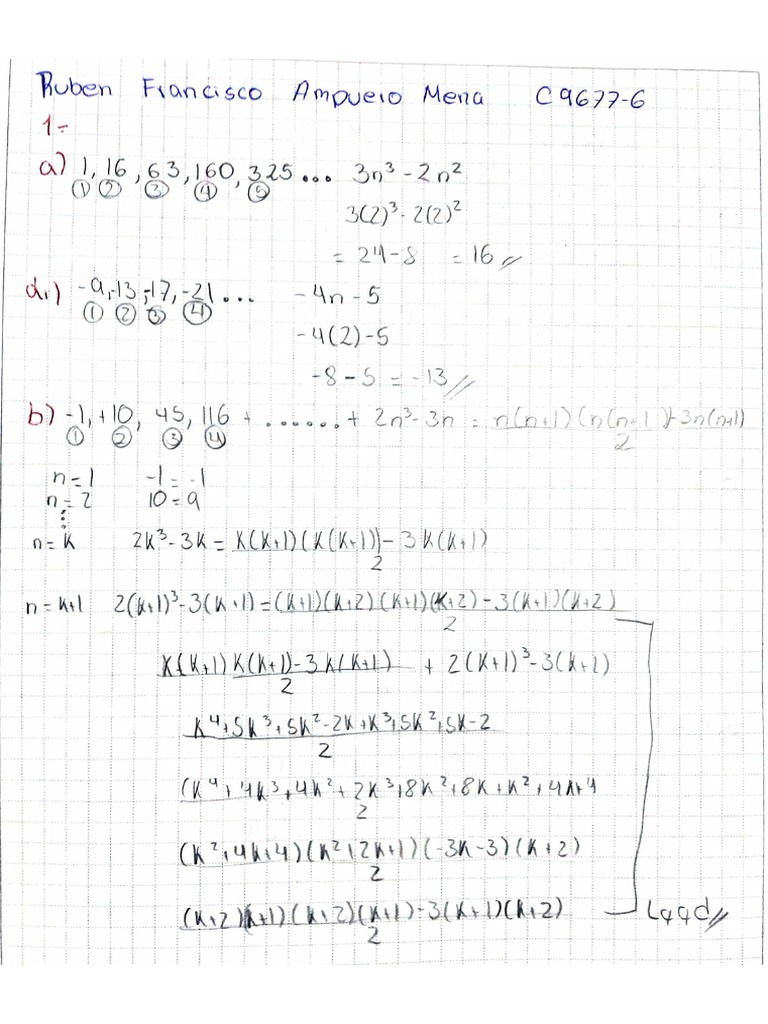 Ruben Francisco Ampuero Mena C9677-6
1-
a) 1, 16, 63, 160, 325 ... 3n³ - 2n²
① ② ③ ④ ⑤
3(2)³ - 2(2)²
= 24 - 8 = 16 //
d.) -9, -13, -17, -21 ... -4n - 5
① ② ③ ④
-4(2) - 5
-8 - 5 = -13 //
b) -1, +10, 45, 116 + ....... + 2n³ - 3n = n(n+1)(n(n+1) - 3n(n+1)
2
① ② ③ ④
n = 1 -1 = -1
n = 2 10 = 9
n = k 2k³ - 3k = k(k+1)(k(k+1)) - 3k(k+1)
2
n = k+1 2(k+1)³ - 3(k+1) = (k+1)(k+2)(k+1)(k+2) - 3(k+1)(k+2)
2
k(k+1)k(k+1) - 3k(k+1) + 2(k+1)³ - 3(k+1)
2
k⁴+5k³+5k²-2k+k³+5k²+5k-2
2
(k⁴+4k³+4k²+2k³+8k²+8k+k²+4k+4
2
(k²+4k+4)(k²+2k+1)(-3k-3)(k+2)
2
(k+2)(k+1)(k+2)(k+1)-3(k+1)(k+2) Lqqd //
2